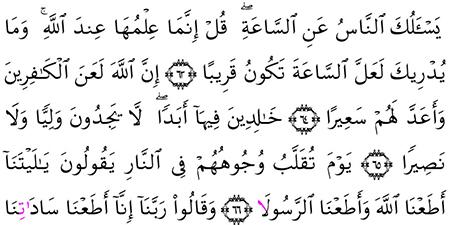 يَسْـَٔلُكَ ٱلنَّاسُ عَنِ ٱلسَّاعَةِ ۖ قُلْ إِنَّمَا عِلْمُهَا عِندَ ٱللَّهِ ۚ وَمَا
يُدْرِيكَ لَعَلَّ ٱلسَّاعَةَ تَكُونُ قَرِيبًا ﴿٦٣﴾ إِنَّ ٱللَّهَ لَعَنَ ٱلْكَـٰفِرِينَ
وَأَعَدَّ لَهُمْ سَعِيرًا ﴿٦٤﴾ خَـٰلِدِينَ فِيهَآ أَبَدًا ۖ لَّا يَجِدُونَ وَلِيًّا وَلَا
نَصِيرًا ﴿٦٥﴾ يَوْمَ تُقَلَّبُ وُجُوهُهُمْ فِى ٱلنَّارِ يَقُولُونَ يَـٰلَيْتَنَآ
أَطَعْنَا ٱللَّهَ وَأَطَعْنَا ٱلرَّسُولَا ﴿٦٦﴾ وَقَالُوا۟ رَبَّنَآ إِنَّآ أَطَعْنَا سَادَٰتِنَا